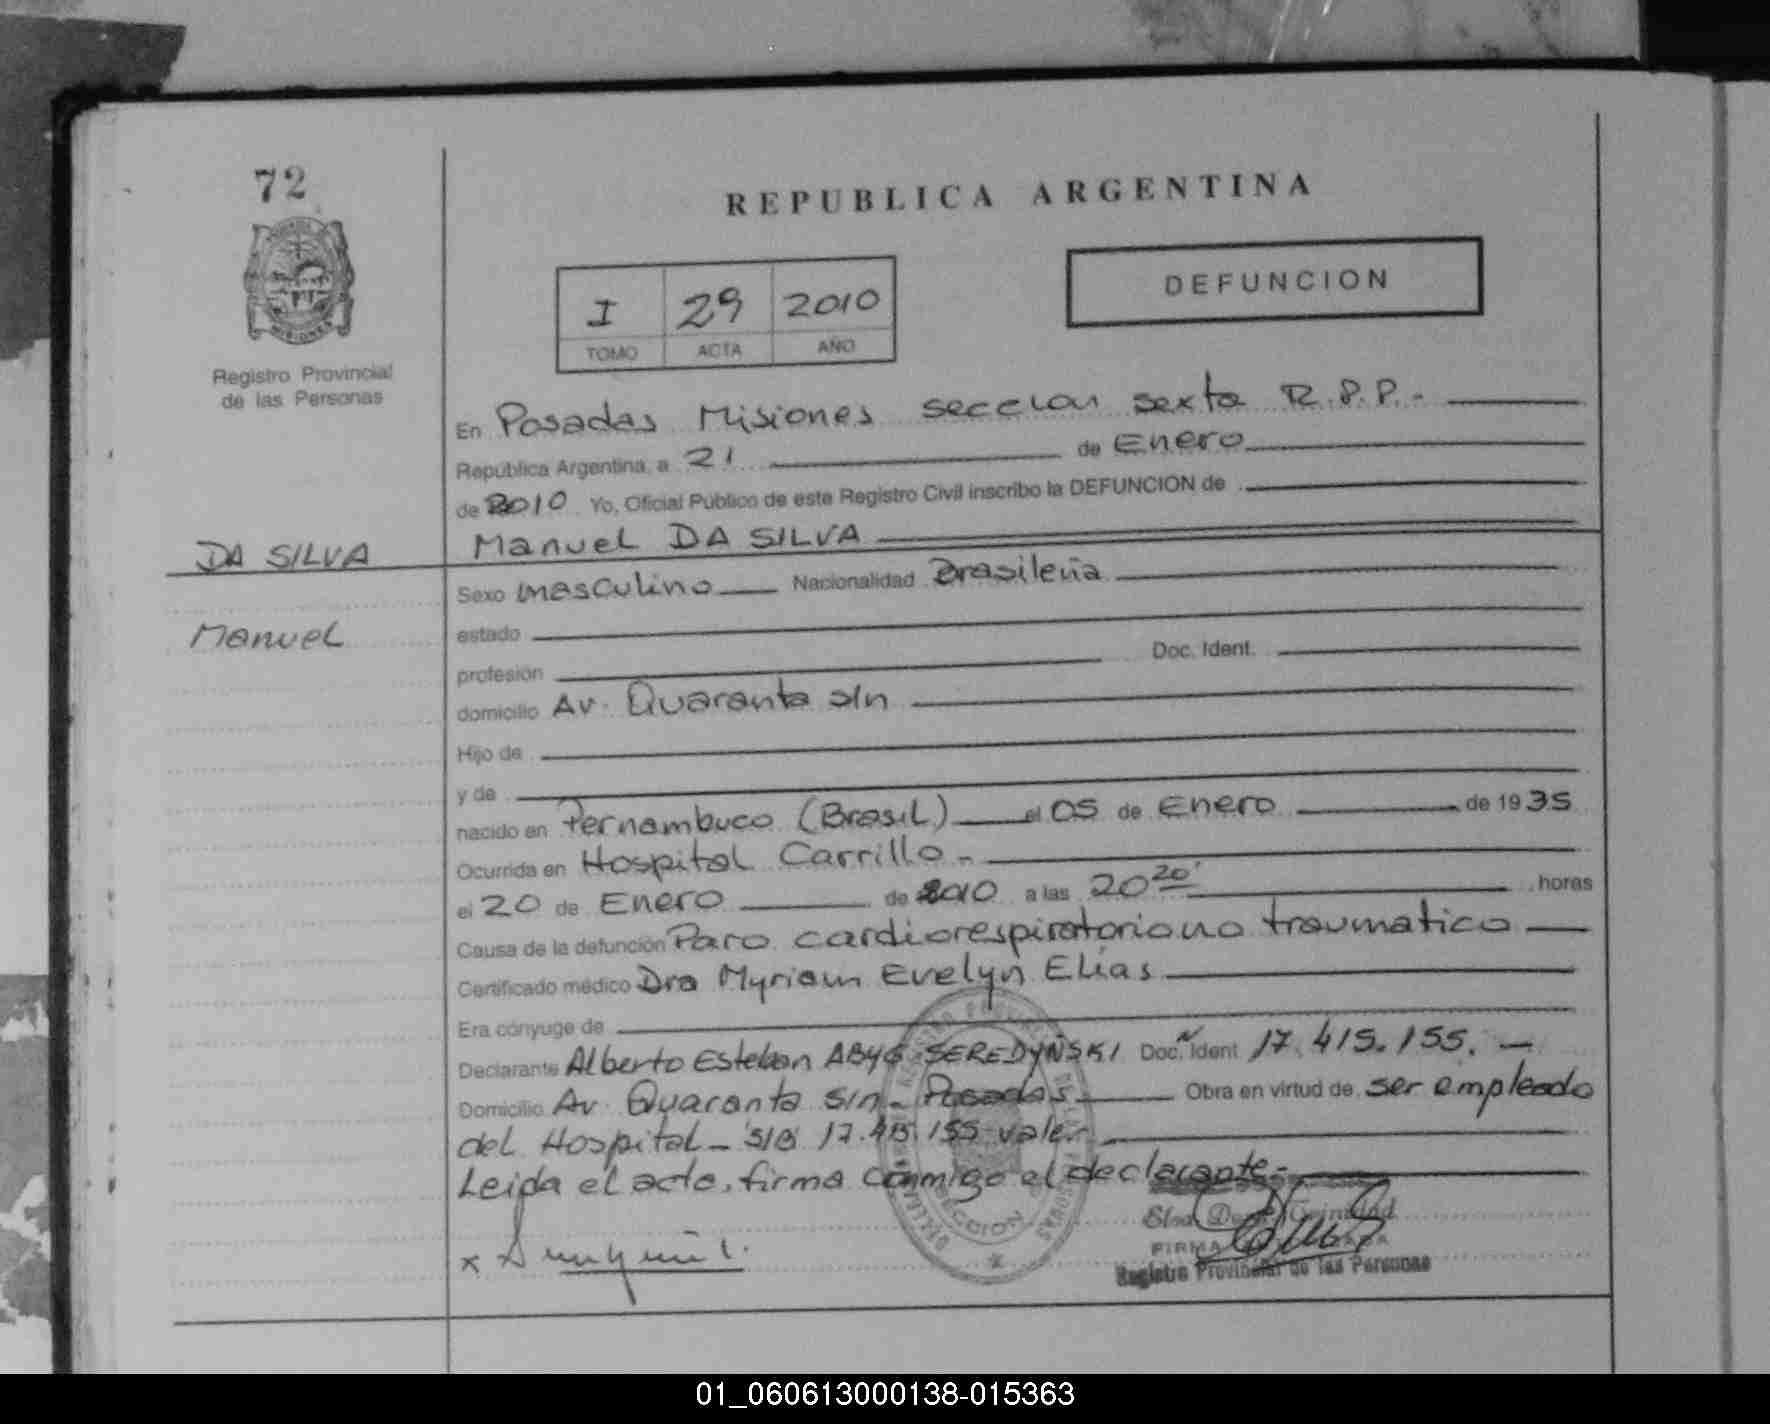 72
MISIONES
Registro Provincial
de las Personas
REPUBLICA ARGENTINA
I 29 2010
TOMO ACTA AÑO
DEFUNCION
En Posadas Misiones seccion sexta R.P.P.-
República Argentina, a 21 de Enero
de 2010 Yo, Oficial Público de este Registro Civil inscribo la DEFUNCION de
DA SILVA
Manuel DA SILVA
Sexo masculino Nacionalidad Brasileña
Manuel
estado
profesión Doc. Ident.
domicilio Av. Quaranta s/n
Hijo de
y de
nacido en Pernambuco (Brasil) el 05 de Enero de 1935
Ocurrida en Hospital Carrillo.-
el 20 de Enero de 2010 a las 20 20' horas
Causa de la defunción Paro cardiorespiratorio no traumatico
Certificado médico Dra Myriam Evelyn Elias
Era cónyuge de
Declarante Alberto Esteban SEREDYÑSKI Doc. Ident 17.415.155.-
Domicilio Av. Quaranta s/n- Posadas Obra en virtud de ser empleado
del Hospital- S/B 17.415.155 vale.-
Leida el acta, firma conmigo el declarante.-
FIRMA
Registro Provincial de las Personas
01_060613000138-015363